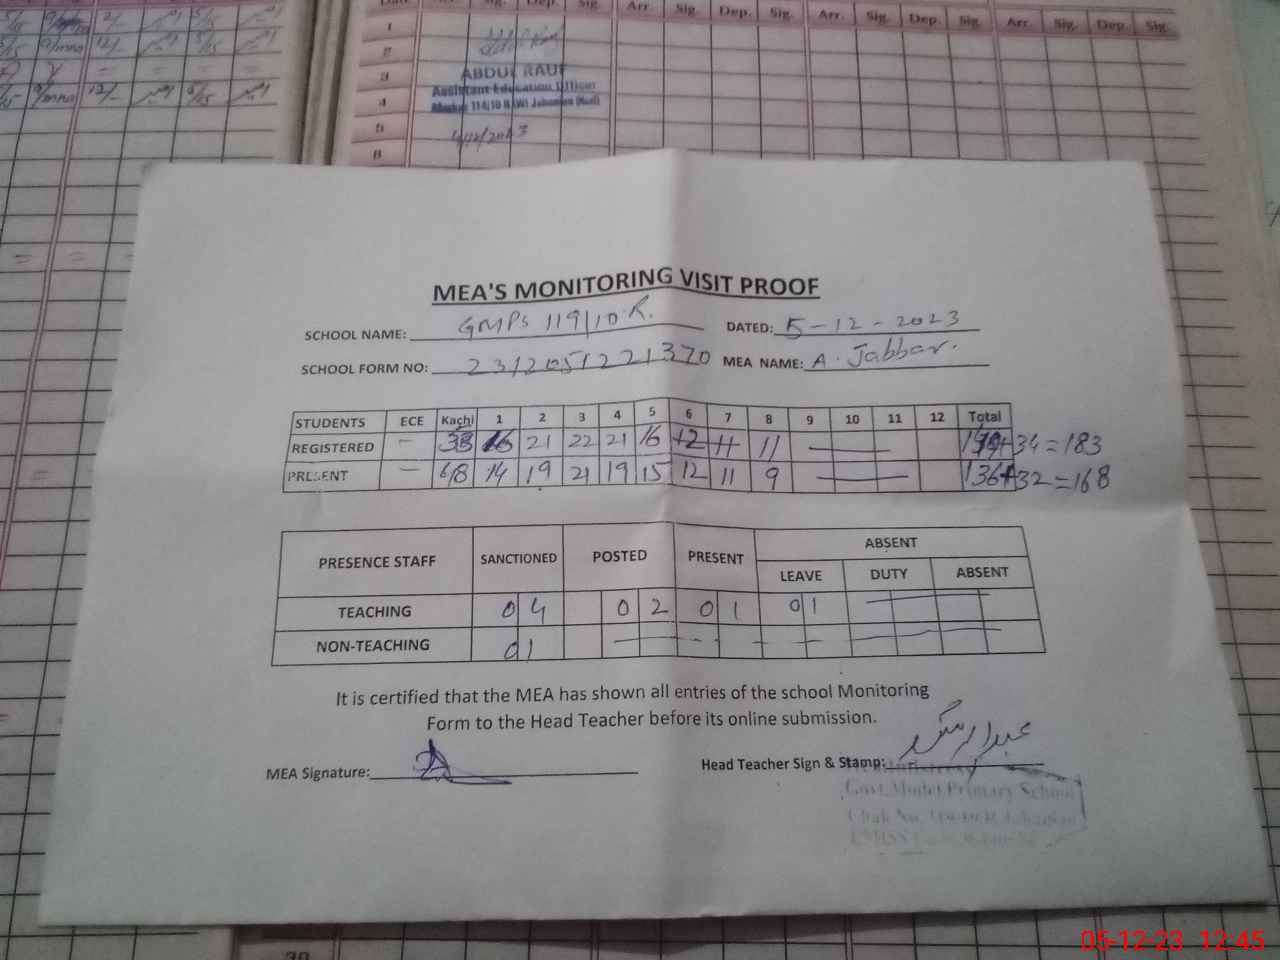 Arr. Sig. Dep. Sig. Arr. Sig. Dep. Sig. Arr. Sig. Dep. Sig.
1
2
3
4
5
6
ABDUL RAUF
Assistant Education Officer
MEA'S MONITORING VISIT PROOF
SCHOOL NAME: GMPS 119/10-R. DATED: 5-12-2023
SCHOOL FORM NO: 2312051221370 MEA NAME: A. Jabbar.
STUDENTS ECE Kachi 1 2 3 4 5 6 7 8 9 10 11 12 Total
REGISTERED — 16 21 22 21 16 12 11 11 — +34=183
PRESENT — 14 19 21 19 15 12 11 9 — 136+32=168
PRESENCE STAFF SANCTIONED POSTED PRESENT ABSENT
LEAVE DUTY ABSENT
TEACHING 04 02 01 01 —
NON-TEACHING 01 —
It is certified that the MEA has shown all entries of the school Monitoring
Form to the Head Teacher before its online submission.
MEA Signature: Head Teacher Sign & Stamp:
Govt. Model Primary School
05-12-23 12:45